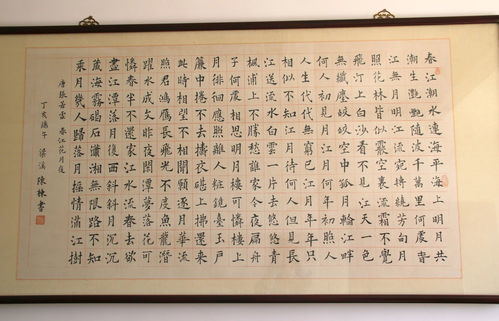 春江潮水連海平海上明月共
潮生灩灩隨波千萬里何處春
江無月明江流宛轉繞芳甸月
照花林皆似霰空裏流霜不覺
飛汀上白沙看不見江天一色
無纖塵皎皎空中孤月輪江畔
何人初見月江月何年初照人
人生代代無窮已江月年年只
相似不知江月待何人但見長
江送流水白雲一片去悠悠青
楓浦上不勝愁誰家今夜扁舟
子何處相思明月樓可憐樓上
月徘徊應照離人粧鏡臺玉戶
簾中捲不去擣衣砧上拂還來
此時相望不相聞願逐月華流
照君鴻雁長飛光不度魚龍潛
躍水成文昨夜閑潭夢落花可
憐春半不還家江水流春去欲
盡江潭落月復西斜斜月沉沉
藏海霧碣石瀟湘無限路不知
乘月幾人歸落月搖情滿江樹
唐張若虛 春江花月夜
丁亥端午 梁溪 陳棟書